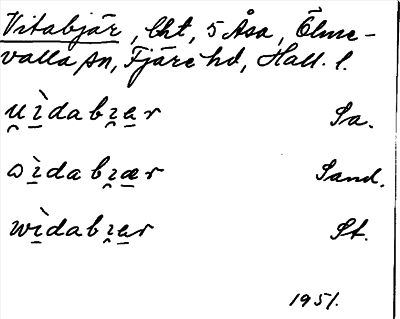 Vitabjär, bht, 5 Åsa, Ölme-
valla sn, Fjäre hd, Hall. l.
u̯ı̱̀dabı̯a̱r Sa.
ʋı̱̀dabı̯æ̱r Sand.
wı̱̀dabı̯a̱r St.
1951.